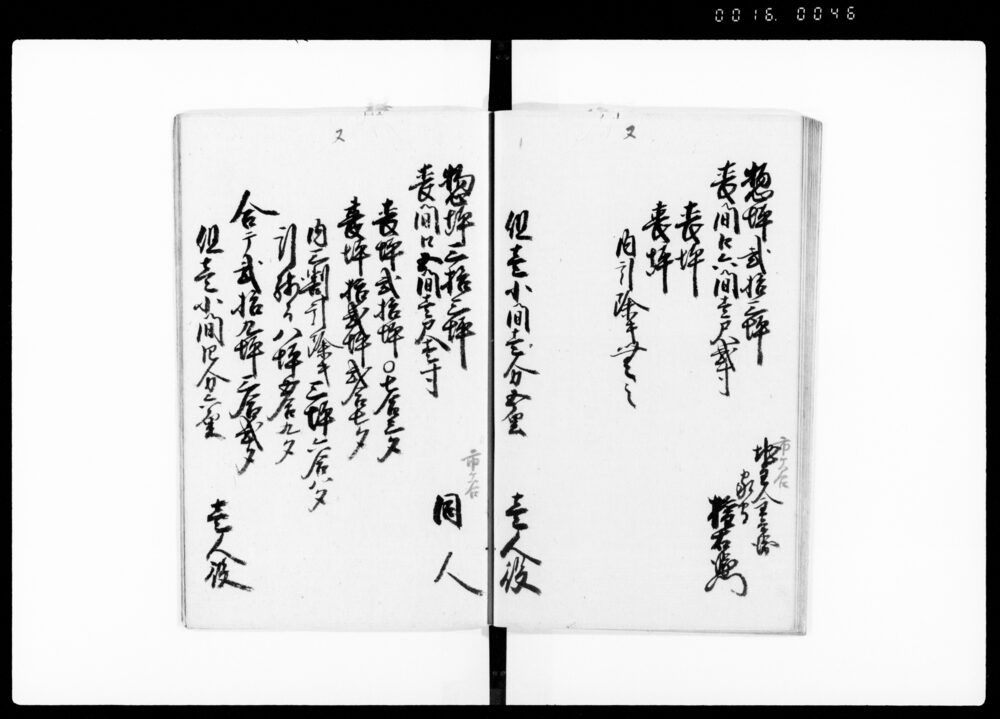 0016. 0046
又
惣坪弐拾三坪
表間口六間壱尺弐寸
表坪
裏坪
内引除無之
但壱小間壱分五厘
市ヶ谷
地主
家守
壱人役
又
惣坪三拾三坪
表間口五間壱尺壱寸
表坪弐拾坪〇七合三夕
裏坪拾弐坪弐合七夕
内三割引除キ三坪六合八夕
引残り八坪五合九夕
合テ弐拾九坪三合弐夕
但壱小間四分六厘
市ヶ谷
同人
壱人役